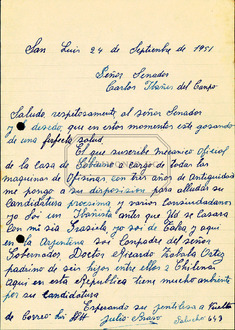 San Luis 24 de Septiembre de 1951
Señor Senador
Carlos Ibañes del Canpo
Saludo respitosamente al señor Senador
y deseo que en estos momentos este gosando
de una perfecta salud
El que suscrebe mecanico oficial
de la casa de Gobierno a cargo de todas las
maquinas de Ofisinas con tres años de antiguidad
me pongo a su disposision para alludar su
candidatura procsima y varios consiudadanos
yo soi un Ibañista antes que Ud se casara
con mi sia Grasiela, yo soi de Talca y aqui
en la Argentina soi conpadre del señor
Gobernador Doctor Ricardo Zabala Ortiz
padrino de seis hijos entre ellos 2 Chilenos
Aqui en esta Republica tiene mucho ambiente
por su Candidatura
Esperando su jentilesa a buelta
de Correo
Julio Bravo
Falucho 643